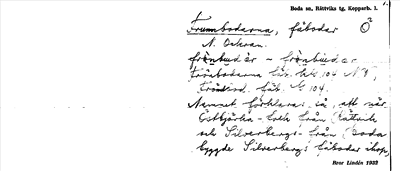 Boda sn, Rättviks tg, Kopparb. l.
Frumbodarna, fäbodar Ö
N. Ockran.
frö̀nbu̇dȧr – frö̀nbu̇dȧr
Fröbodarna häs. kbl 104 N 9,
fäb. kbl 104.
Namnet förklaras så, att när
Östbjörka-folk från Rättvik
och Silverbergs- från Boda
byggde Silverbergs fäbodar ihop,
Bror Lindén 1932